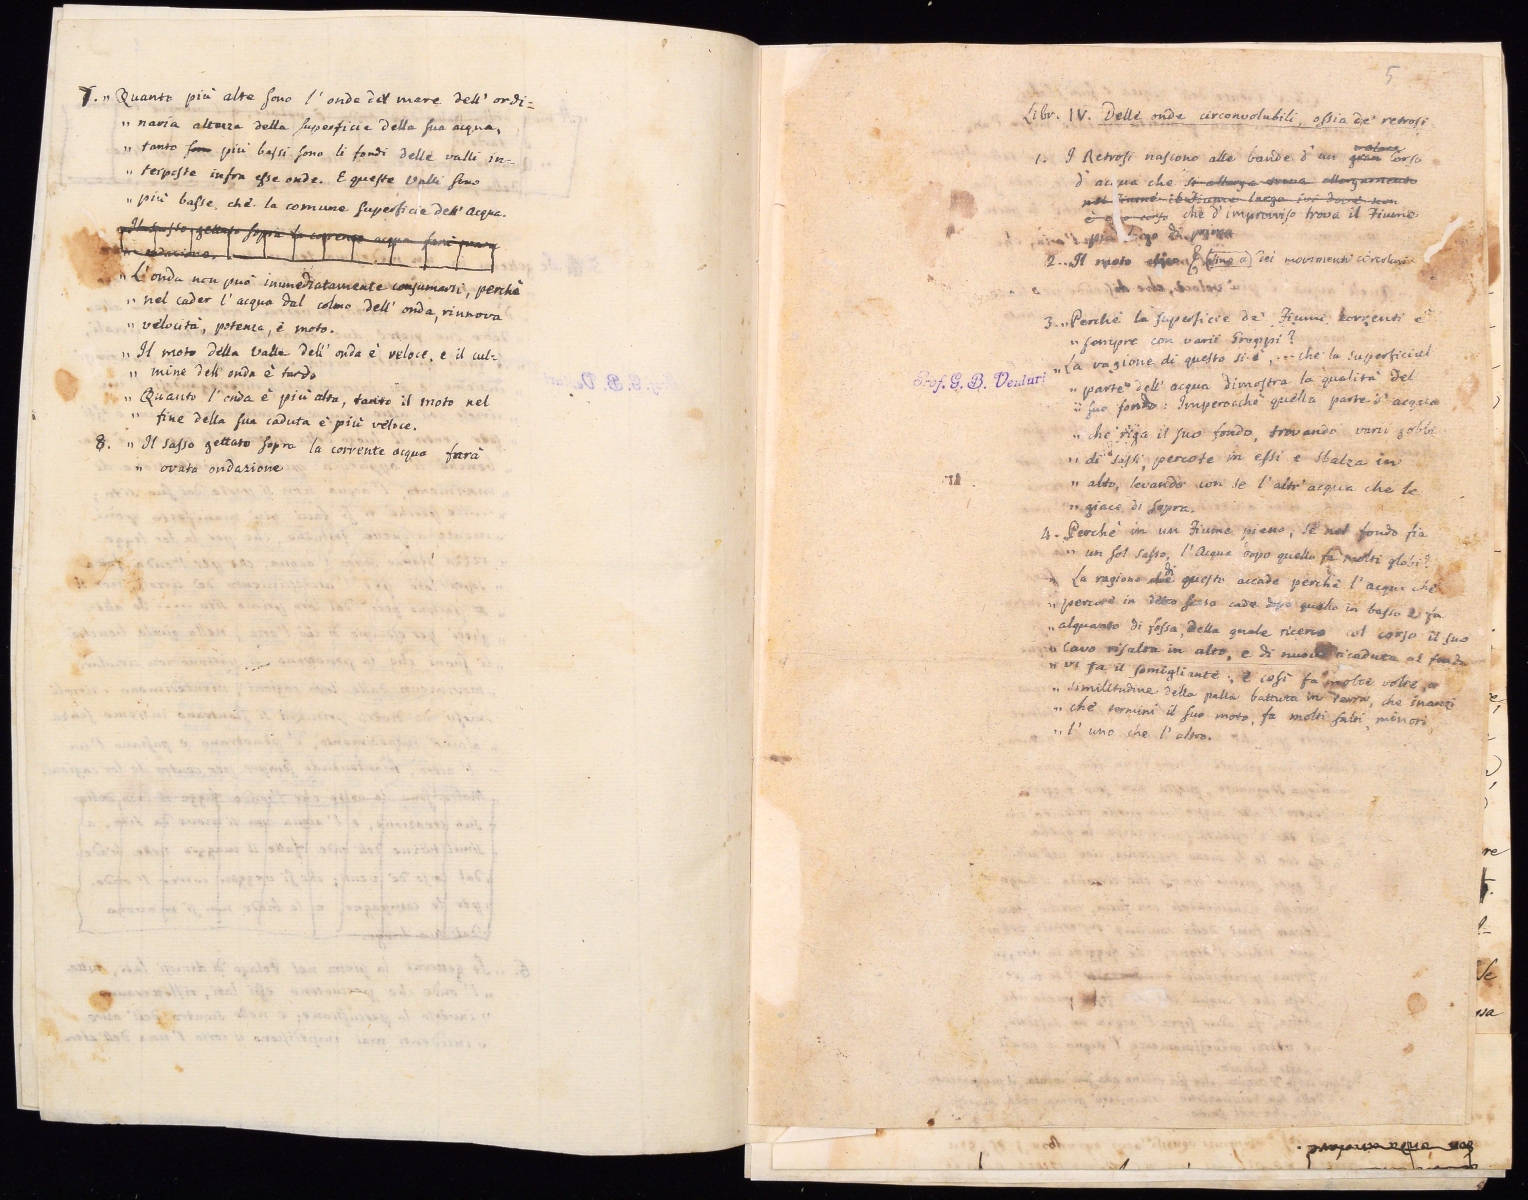 7. „ Quanto più alte sono l' onde del mare dell' ordi=
„ naria altezza della superficie della sua acqua,
„ tanto sono più bassi sono li fondi delle valli in=
„ terposte infra esse onde. E queste valli sono
„ più basse, che la comune superficie dell' acqua.
Il sasso gettato sopra la corrente acqua farà ovata
ondazione.
„ L' onda non può immediatamente consumarsi, perchè
„ nel cader l' acqua dal colmo dell' onda, rinnova
„ velocità, potenza, e moto.
„ Il moto della valle dell' onda è veloce, e il cul=
„ mine dell' onda è tardo
„ Quanto l' onda è più alta, tanto il moto nel
„ fine della sua caduta è più veloce.
8. „ Il sasso gettato sopra la corrente acqua farà
„ ovata ondazione
5
Libr. IV. Delle onde circonvolubili, ossia de' retrosi
1. I Retrosi nascono alle bande d' un gran veloce corso
d' acqua che si allarga trova allargamento
nel fiume il Fiume largo ivi dove non
è corso che d' improvviso trova il Fiume
più largo di prima
2. Il moto dei movimenti circolari
3. „ Perchè la superficie de' Fiumi correnti è
„ sempre con varii Groppi?
„ La ragione di questo si è, ... che la superficial
„ parte dell' acqua dimostra la qualità del
„ suo fondo: Imperocchè quella parte d' acqua
„ che riga il suo fondo, trovando varii gobbi
„ di sassi, percote in essi e sbalza in
„ alto, levando con se l' altr' acqua che le
„ giace di sopra.
4. Perchè in un Fiume pieno, se nel fondo sia
„ un sol sasso, l' Acqua dopo quello fa molti globi?
„ La ragione di questo accade perchè l' acqua che
„ percote in detto sasso cade dopo quello in basso e fa
„ alquanto di fossa, della quale ricerca col corso il suo
„ cavo risalta in alto, e di nuovo ricaduta al fondo
„ vi fa il somigliante; e così fa molte volte a
„ similitudine della palla battuta in terra, che inanzi
„ che termini il suo moto, fa molti salti, minori
„ l' uno che l' altro.
Prof. G. B. Venturi